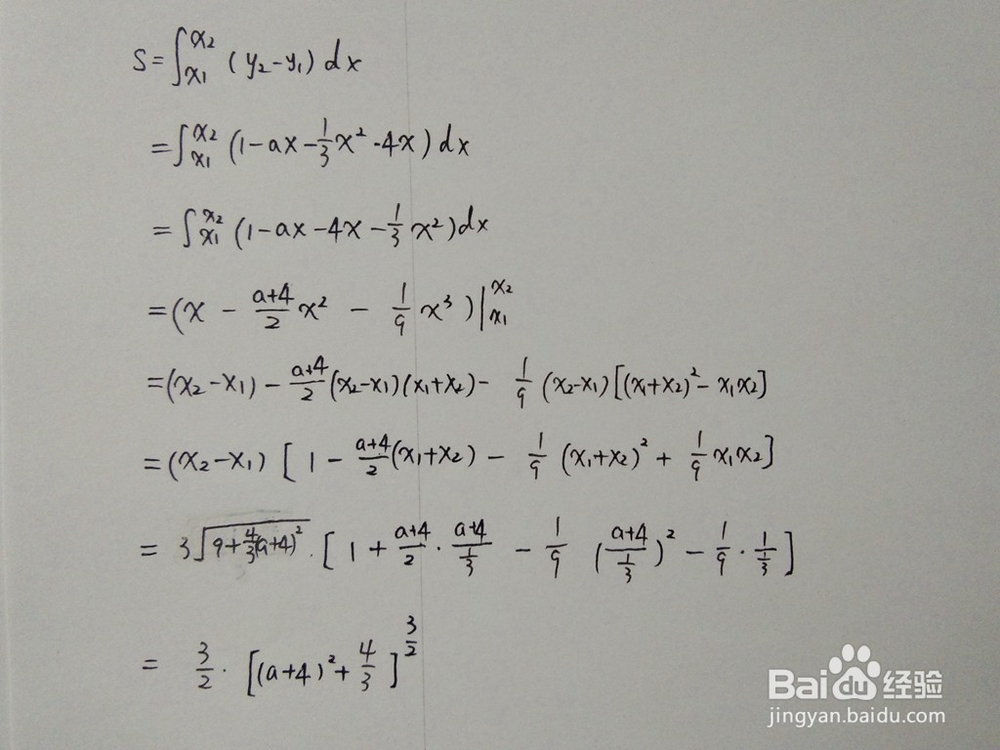 S = ∫_{x1}^{x2} (y2-y1) dx
= ∫_{x1}^{x2} (1-ax-\frac{1}{3}x²-4x) dx
= ∫_{x1}^{x2} (1-ax-4x-\frac{1}{3}x²) dx
= (x - \frac{a+4}{2}x² - \frac{1}{9}x³)|_{x1}^{x2}
= (x2-x1) - \frac{a+4}{2}(x2-x1)(x1+x2) - \frac{1}{9}(x2-x1)[(x1+x2)²-x1x2]
= (x2-x1) [1 - \frac{a+4}{2}(x1+x2) - \frac{1}{9}(x1+x2)² + \frac{1}{9}x1x2]
= 3\sqrt{9+\frac{4}{3}(a+4)²} · [1 + \frac{a+4}{2} · \frac{a+4}{\frac{1}{3}} - \frac{1}{9}(\frac{a+4}{\frac{1}{3}})² - \frac{1}{9} · \frac{1}{\frac{1}{3}}]
= \frac{3}{2} · [(a+4)² + \frac{4}{3}]^{\frac{3}{2}}
Baidu经验
jingyan.baidu.com